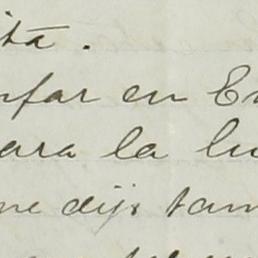 ita.
nfar en En
ara la lu
me dijo tam